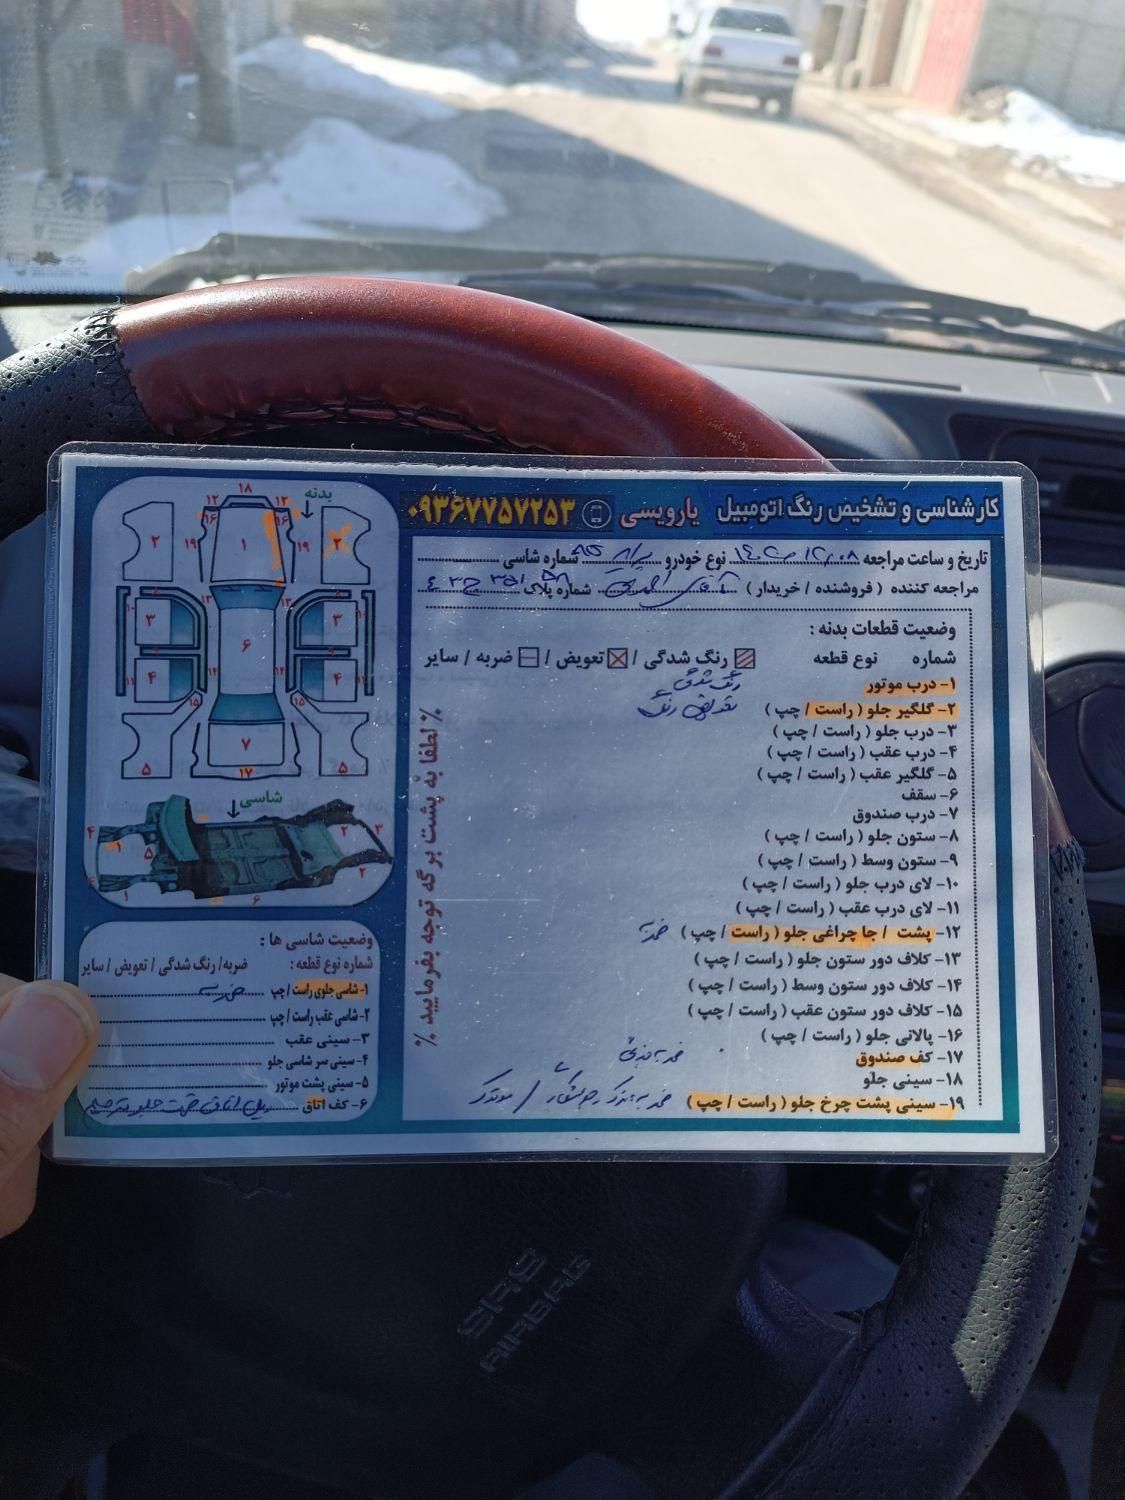 کارشناسی و تشخیص رنگ اتومبیل یارویسی ۰۹۳۶۷۷۵۷۲۵۳
تاریخ و ساعت مراجعه نوع خودرو پراید شماره شاسی
مراجعه کننده ( فروشنده / خریدار ) آقای شماره پلاک
وضعیت قطعات بدنه :
شماره نوع قطعه رنگ شدگی / تعویض / ضربه / سایر
۱- درب موتور رنگ شدگی
۲- گلگیر جلو ( راست / چپ ) تعویض رنگ
۳- درب جلو ( راست / چپ )
۴- درب عقب ( راست / چپ )
۵- گلگیر عقب ( راست / چپ )
۶- سقف
۷- درب صندوق
۸- ستون جلو ( راست / چپ )
۹- ستون وسط ( راست / چپ )
۱۰- لای درب جلو ( راست / چپ )
۱۱- لای درب عقب ( راست / چپ )
۱۲- پشت / جا چراغی جلو ( راست / چپ ) ضربه
۱۳- کلاف دور ستون جلو ( راست / چپ )
۱۴- کلاف دور ستون وسط ( راست / چپ )
۱۵- کلاف دور ستون عقب ( راست / چپ )
۱۶- پالانی جلو ( راست / چپ )
۱۷- کف صندوق ضربه جزئی
۱۸- سینی جلو
۱۹- سینی پشت چرخ جلو ( راست / چپ ) ضربه
٪ لطفا به پشت برگه توجه بفرمایید ٪
بدنه
۱۸
۱۲ ۱۲
۱۶ ۱۶
۲ ۱۹ ۱ ۱۹ ۲
۱۳ ۱۳
۳ ۶ ۳
۱۴ ۱۴
۴ ۴
۱۵ ۱۵
۵ ۷ ۵
۱۷
شاسی
وضعیت شاسی ها :
شماره نوع قطعه : ضربه / رنگ شدگی / تعویض / سایر
۱- شاسی جلوی راست / چپ ضربه
۲- شاسی عقب راست / چپ
۳- سینی عقب
۴- سینی سر شاسی جلو
۵- سینی پشت موتور
۶- کف اتاق
SRS
AIRBAG